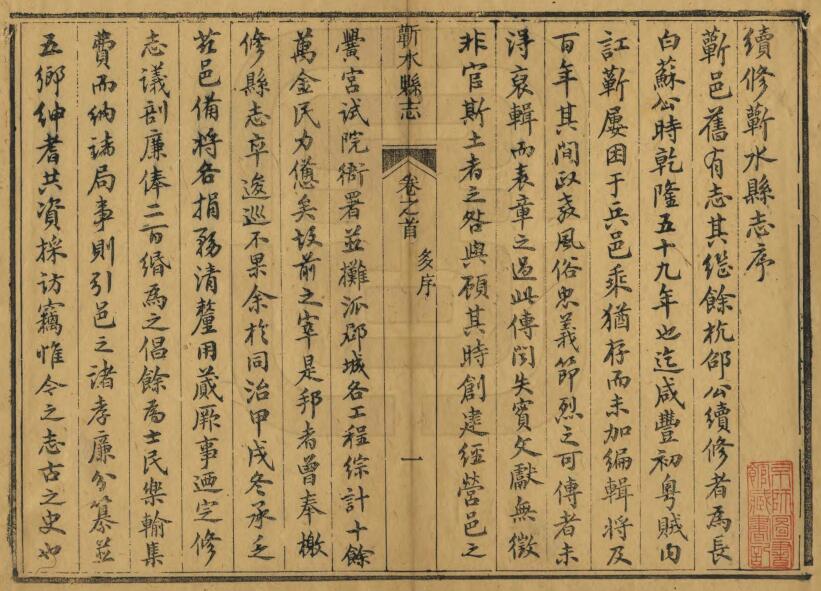 續修蘄水縣志序
蘄邑舊有志其繼餘杭邵公續修者為長
白蘇公時乾隆五十九年也迄咸豐初粵賊內
訌蘄屢困于兵邑乘猶存而未加編輯將及
百年其間政教風俗忠義節烈之可傳者未
淂裒輯而表章之過此傳聞失實文獻無徵
非官斯土者之咎與顧其時創建經營邑之
蘄水縣志
卷之首
多序
一
黌宮試院衙署並攤派郡城各工程綜計十餘
萬金民力憊矣故前之宰是邦者曾奉檄
修縣志卒逡巡不果余於同治甲戌冬承乏
茲邑備將各捐務清釐用蕆厥事迺定修
志議剖廉俸二百緡為之倡餘為士民樂輸集
費而納諸局事則引邑之諸孝廉分纂並
五鄉紳耆共資採訪竊惟今之志古之史也
京師圖書
館藏書記